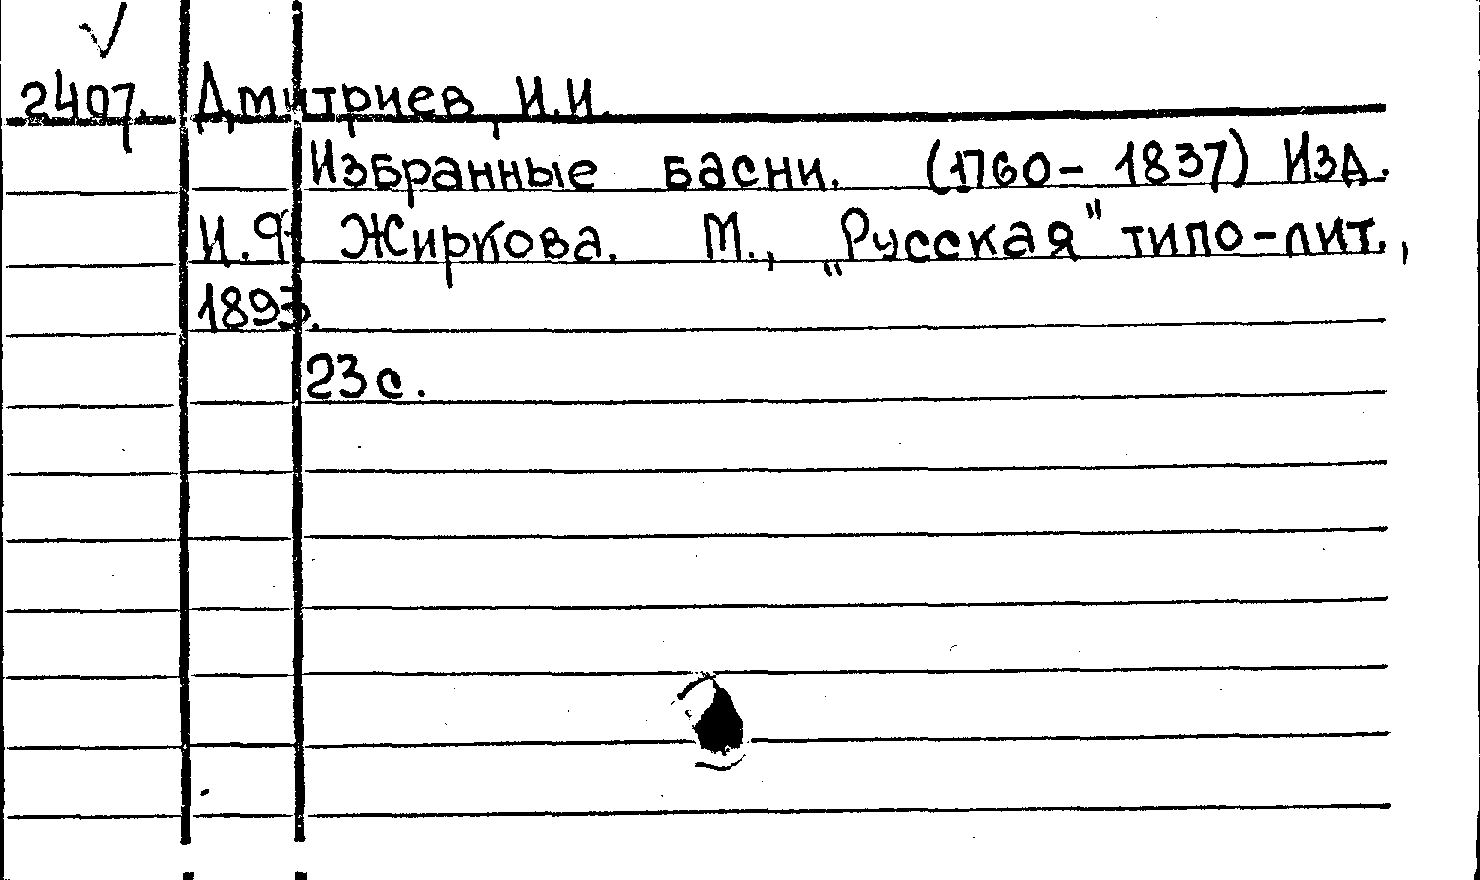 2407. Дмитриев, И.И.
Избранные басни. (1760- 1837) Изд.
И.Ф. Жиркова. М., „Русская" типо-лит.,
1893.
23 с.